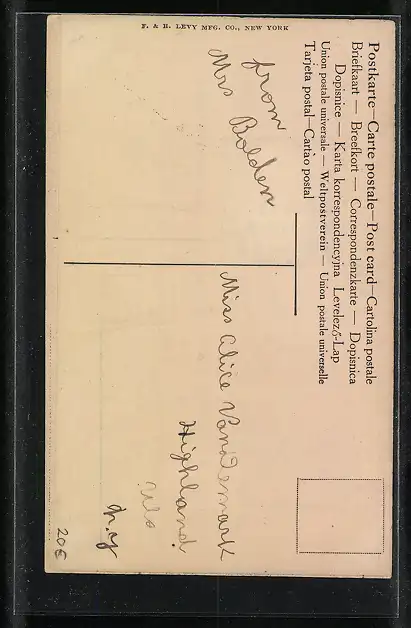 Postkarte—Carte postale—Post card—Cartolina postale
Briefkaart — Breefkort — Correspondenzkarte — Dopisnica
Dopisnice — Karta korrespondencyjna Levelező-Lap
Union postale universale — Weltpostverein — Union postale universelle
Tarjeta postal—Cartão postal
F. & H. LEVY MFG. CO., NEW YORK
from
Mrs Bolden
Miss Alice VanDemark
Highland
Uls
N.Y
20€